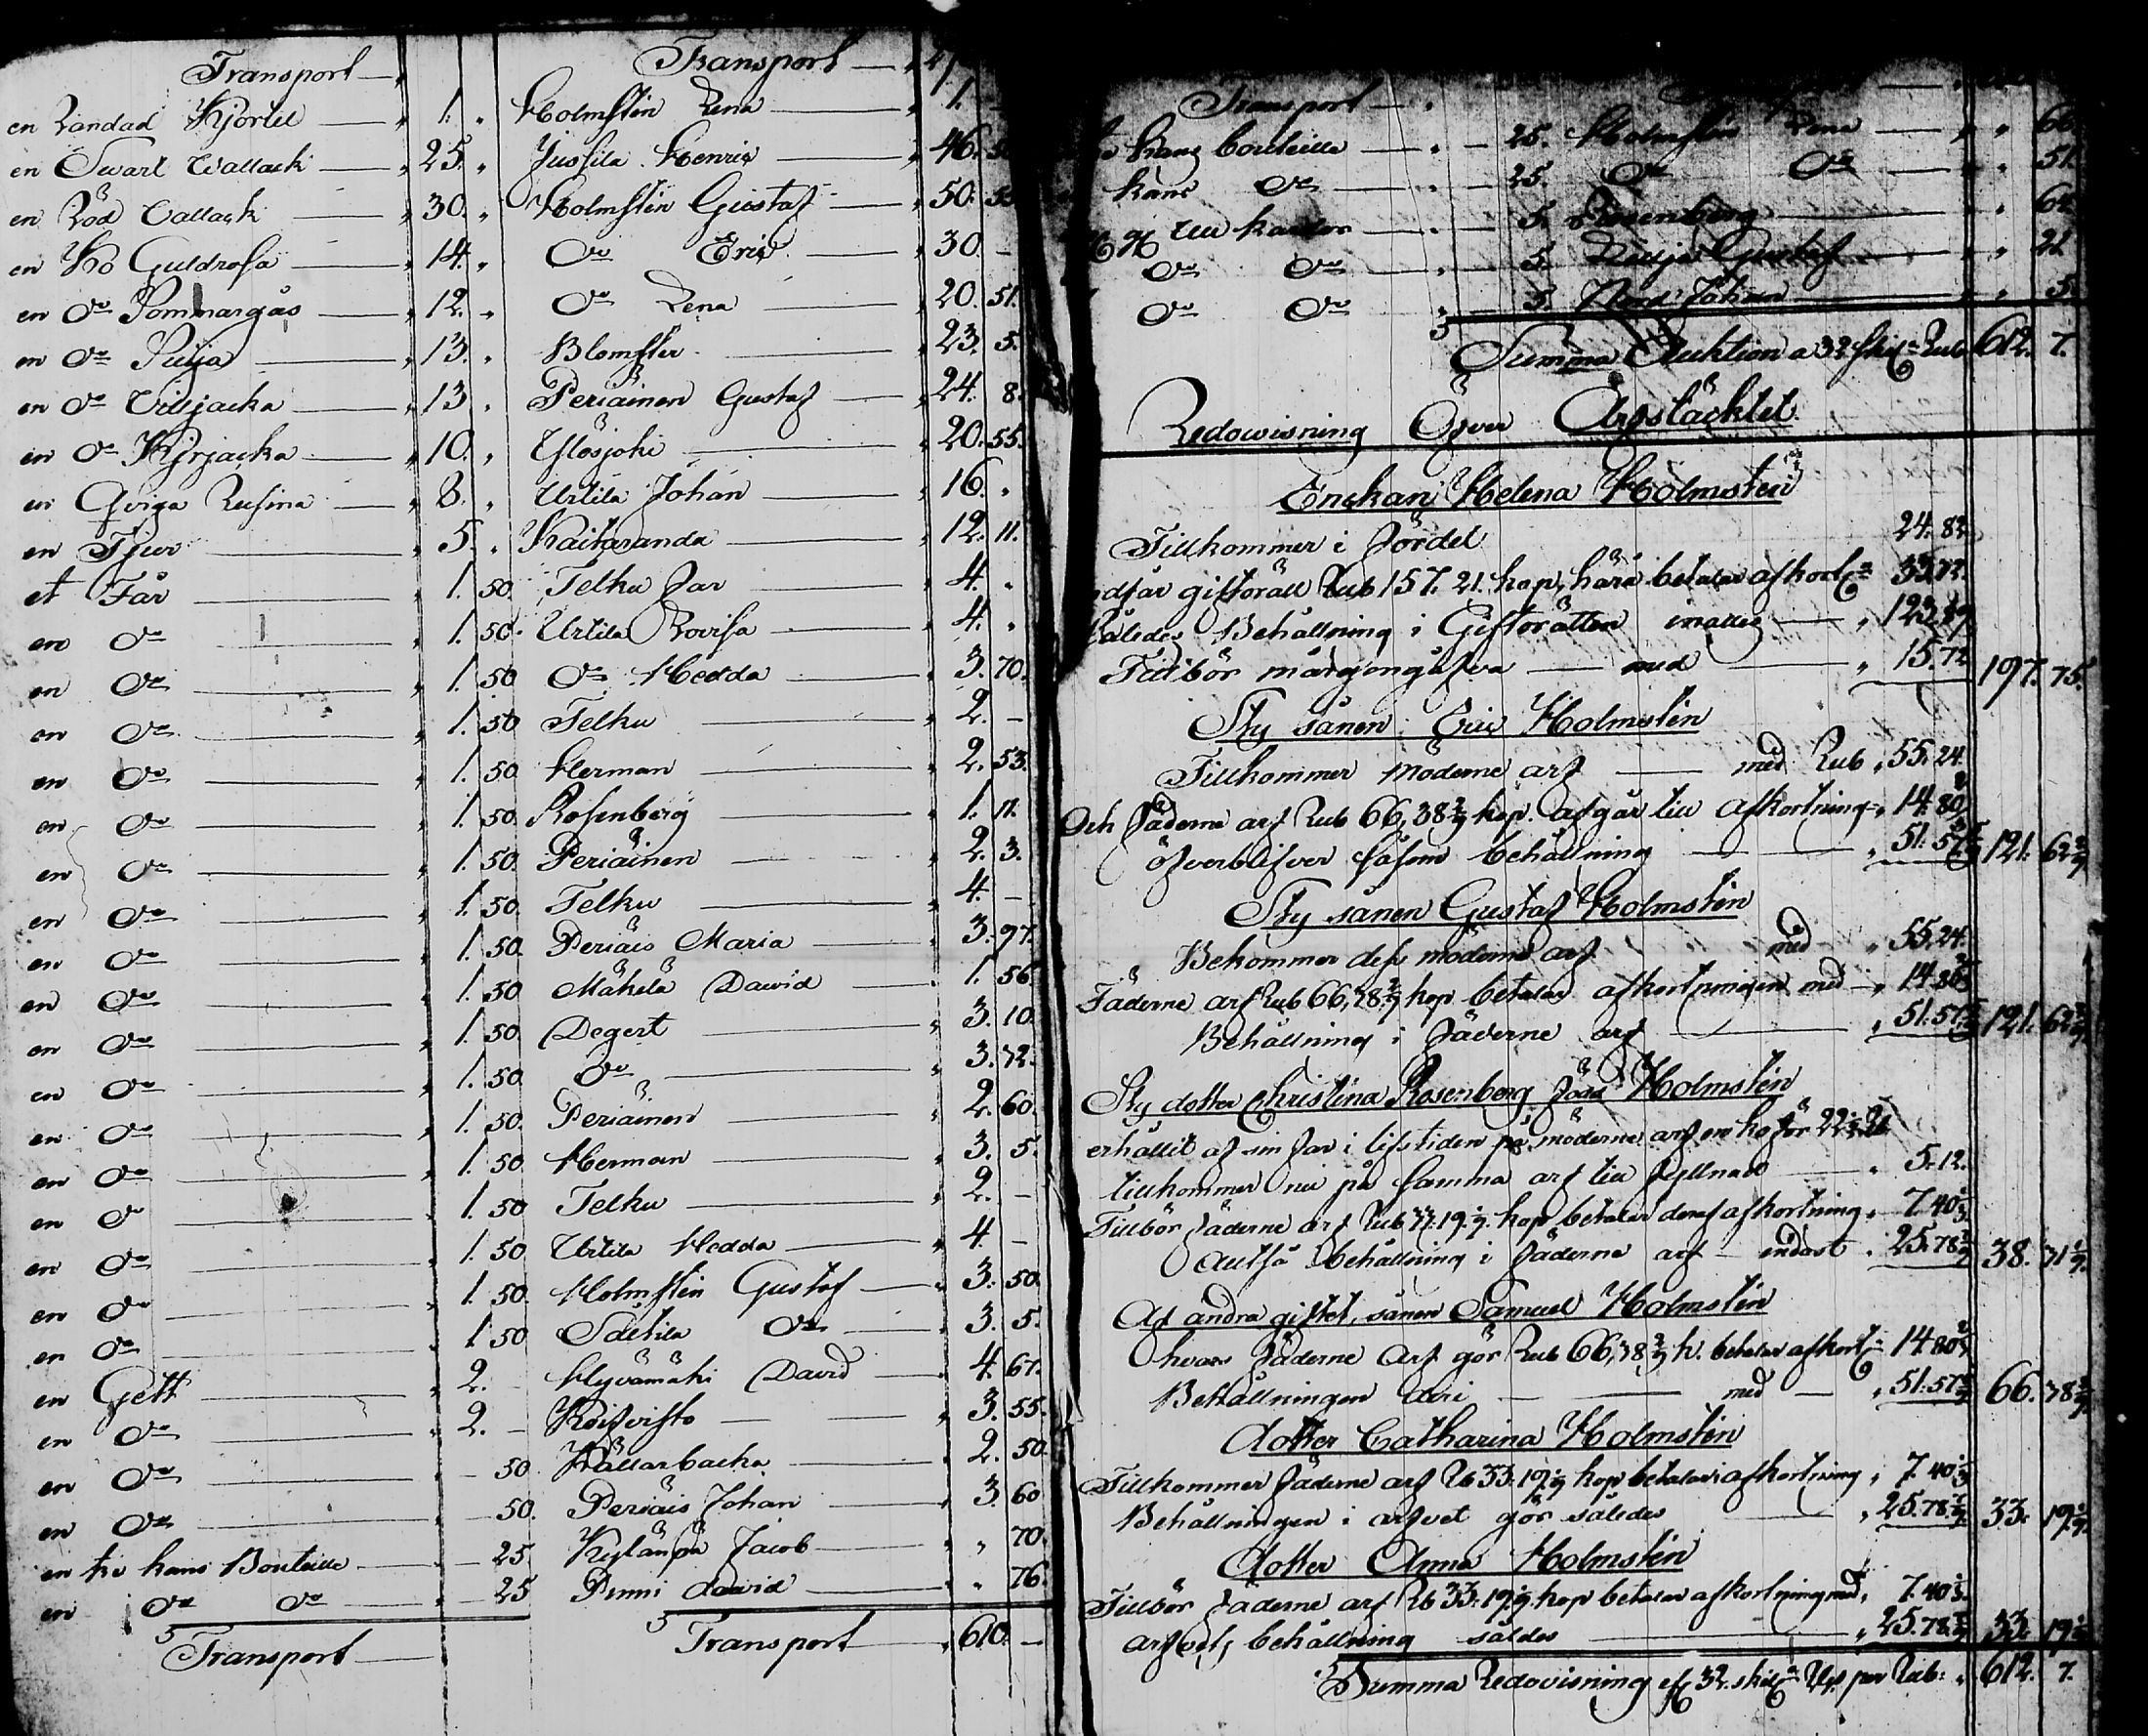 Transport — Transport —
en Randad Kjortel — 1. „ Holmstén Lena — 1. —
en Swart Wallack — 25. „ Jussila Henric — 46.
en Röd Vallack — 30. „ Holmstén Gustaf — 50.
en Ko Guldrosa — 14. „ Do Eric — 30. —
en Do Sommargås — 12. „ Do Lena — 20. 51.
en Do — 13. „ Blomster — 23. 5.
en Do Villjacka — 13 „ Periäinen Gustaf — 24. 8.
en Do Kirjacka — 10. „ Ylösjoki — 20. 55.
en Qviga Rusina — 8. „ Urtila Johan — 16. „
en Tjur — 5. „ Kaitaranda — 12. 11.
et Får — 1. 50. Telku Far — 4. „
en Do — 1. 50. Urtila Lovisa — 4. „
en Do — 1. 50 Do Hedda — 3. 70.
en Do — 1. 50 Telku — 2. —
en Do — 1. 50 Herman — 2. 53.
en Do — 1. 50. Rosenberg — 1. 11.
en Do — 1. 50. Periäinen — 2. 3.
en Do — 1. 50. Telku — 4. —
en Do — 1. 50. Periäis Maria — 3. 97.
en Do — 1. 50 Mäkelä David — 1. 56
en Do — 1. 50. Degert — 3. 10.
en Do — 1. 50 Do — 3. 72.
en Do — 1. 50. Periäinen — 2. 60.
en Do — 1. 50 Herman — 3. 5.
en Do — 1. 50 Telku — 2. —
en Do — 1. 50. Urtila Hedda — 4. —
en Do — 1. 50. Holmstén Gustaf — 3. 50.
en Do — 1 50 Do — 3. 5.
en Gett — 2. Hyvämäki David — 4. 67.
en Do — 2. — Koifvisto — 3. 55.
en Do — 50. Källarbacka — 2. 50.
en Do — 50. Periäis Johan — 3. 60
en tre kans Bouteille — 25. Kylänpä Jacob — „ 70.
en Do Do — 25 Pinni David — „ 76.
Transport — Transport — 610. —
Transport —
kans Bouteille — 25. Holmstén Lena — „ 66
kans Do — 25. Do Do — „ 51.
kardor — 5. Rosenberg — „
Do Do — 5. Gustaf — „ 21
Do Do — 5. Nord Johan — „ 5.
Summa Auktion a 32 skil Rub 612. 7.
Redowisning Öfver Arfstäcktet
Enckan Helena Holmstén
Tillkommer i Fördel 24. 82
giftorätt Rub 157. 21. kop, härå betalas afkort 33.72.
Således Behållning i Giftorätten — 123.
Tillbör morgongåfva — med — 15. 72 197. 75.
Sty sånen Eric Holmstén
Tillkommer möderne arf — med Rub 55. 24.
Och Fäderne arf Rub 66, 38 2/9 kop. afgår till afkortning 14. 80 2/3
öfverblifver såsom behållning — 51. 57 121. 62 2/9
Sty sånen Gustaf Holmstén
Bekommer dess möderne arf med 55. 24.
Fäderne arf Rub 66, 38 2/9 kop betalar afkortningen med 14. 80
Behållning i Fäderne arf — 51. 57 121. 62 2/9
Sty dotter Christina Rosenberg född Holmstén
erhållit af sin far i lifstiden på möderne arf en ko för
tillkommer nu på samma arf till fyllnad — 5. 12.
Tillbör Fäderne arf Rub 33. 19 1/9 kop betalar deraf afkortning 7. 40 1/3
Alltså behållning i Fäderne arf endast 25. 78 7/9 38. 31 1/9
Af andra giftet, sånen Samuel Holmstén
hvars Fäderne Arf gör Rub 66, 38 2/9 k. betalar afkort 14 80 2/3
Behållningen deri — med — 51. 57 66. 38 2/9
dotter Catharina Holmstén
Tillkommer Fäderne arf Rb 33. 19 1/9 kop betalar afkortning 7. 40 1/3
Behållningen i arfvet gör således — 25. 78 7/9 33. 19 1/9
dotter Anna Holmstén
Tillbör Fäderne arf Rb 33. 19 1/9 kop betalar afkortning med 7. 40 1/3
arfvets behållning således — 25. 78 7/9 33. 19 1/9
Summa Redovisning 32. skil per Rub: 612. 7.